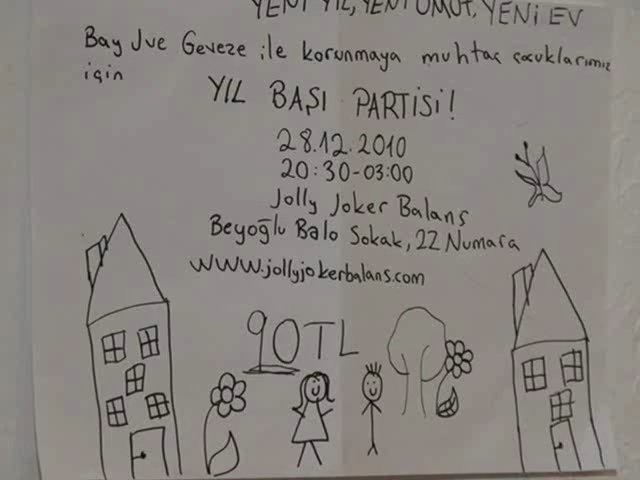 YENİ YIL, YENİ UMUT, YENİ EV
Bay Jve Geveze ile korunmaya muhtaç çocuklarımız
için
YIL BAŞI PARTİSİ!
28.12.2010
20:30-03:00
Jolly Joker Balans
Beyoğlu Balo Sokak, 22 Numara
www.jollyjokerbalans.com
90TL